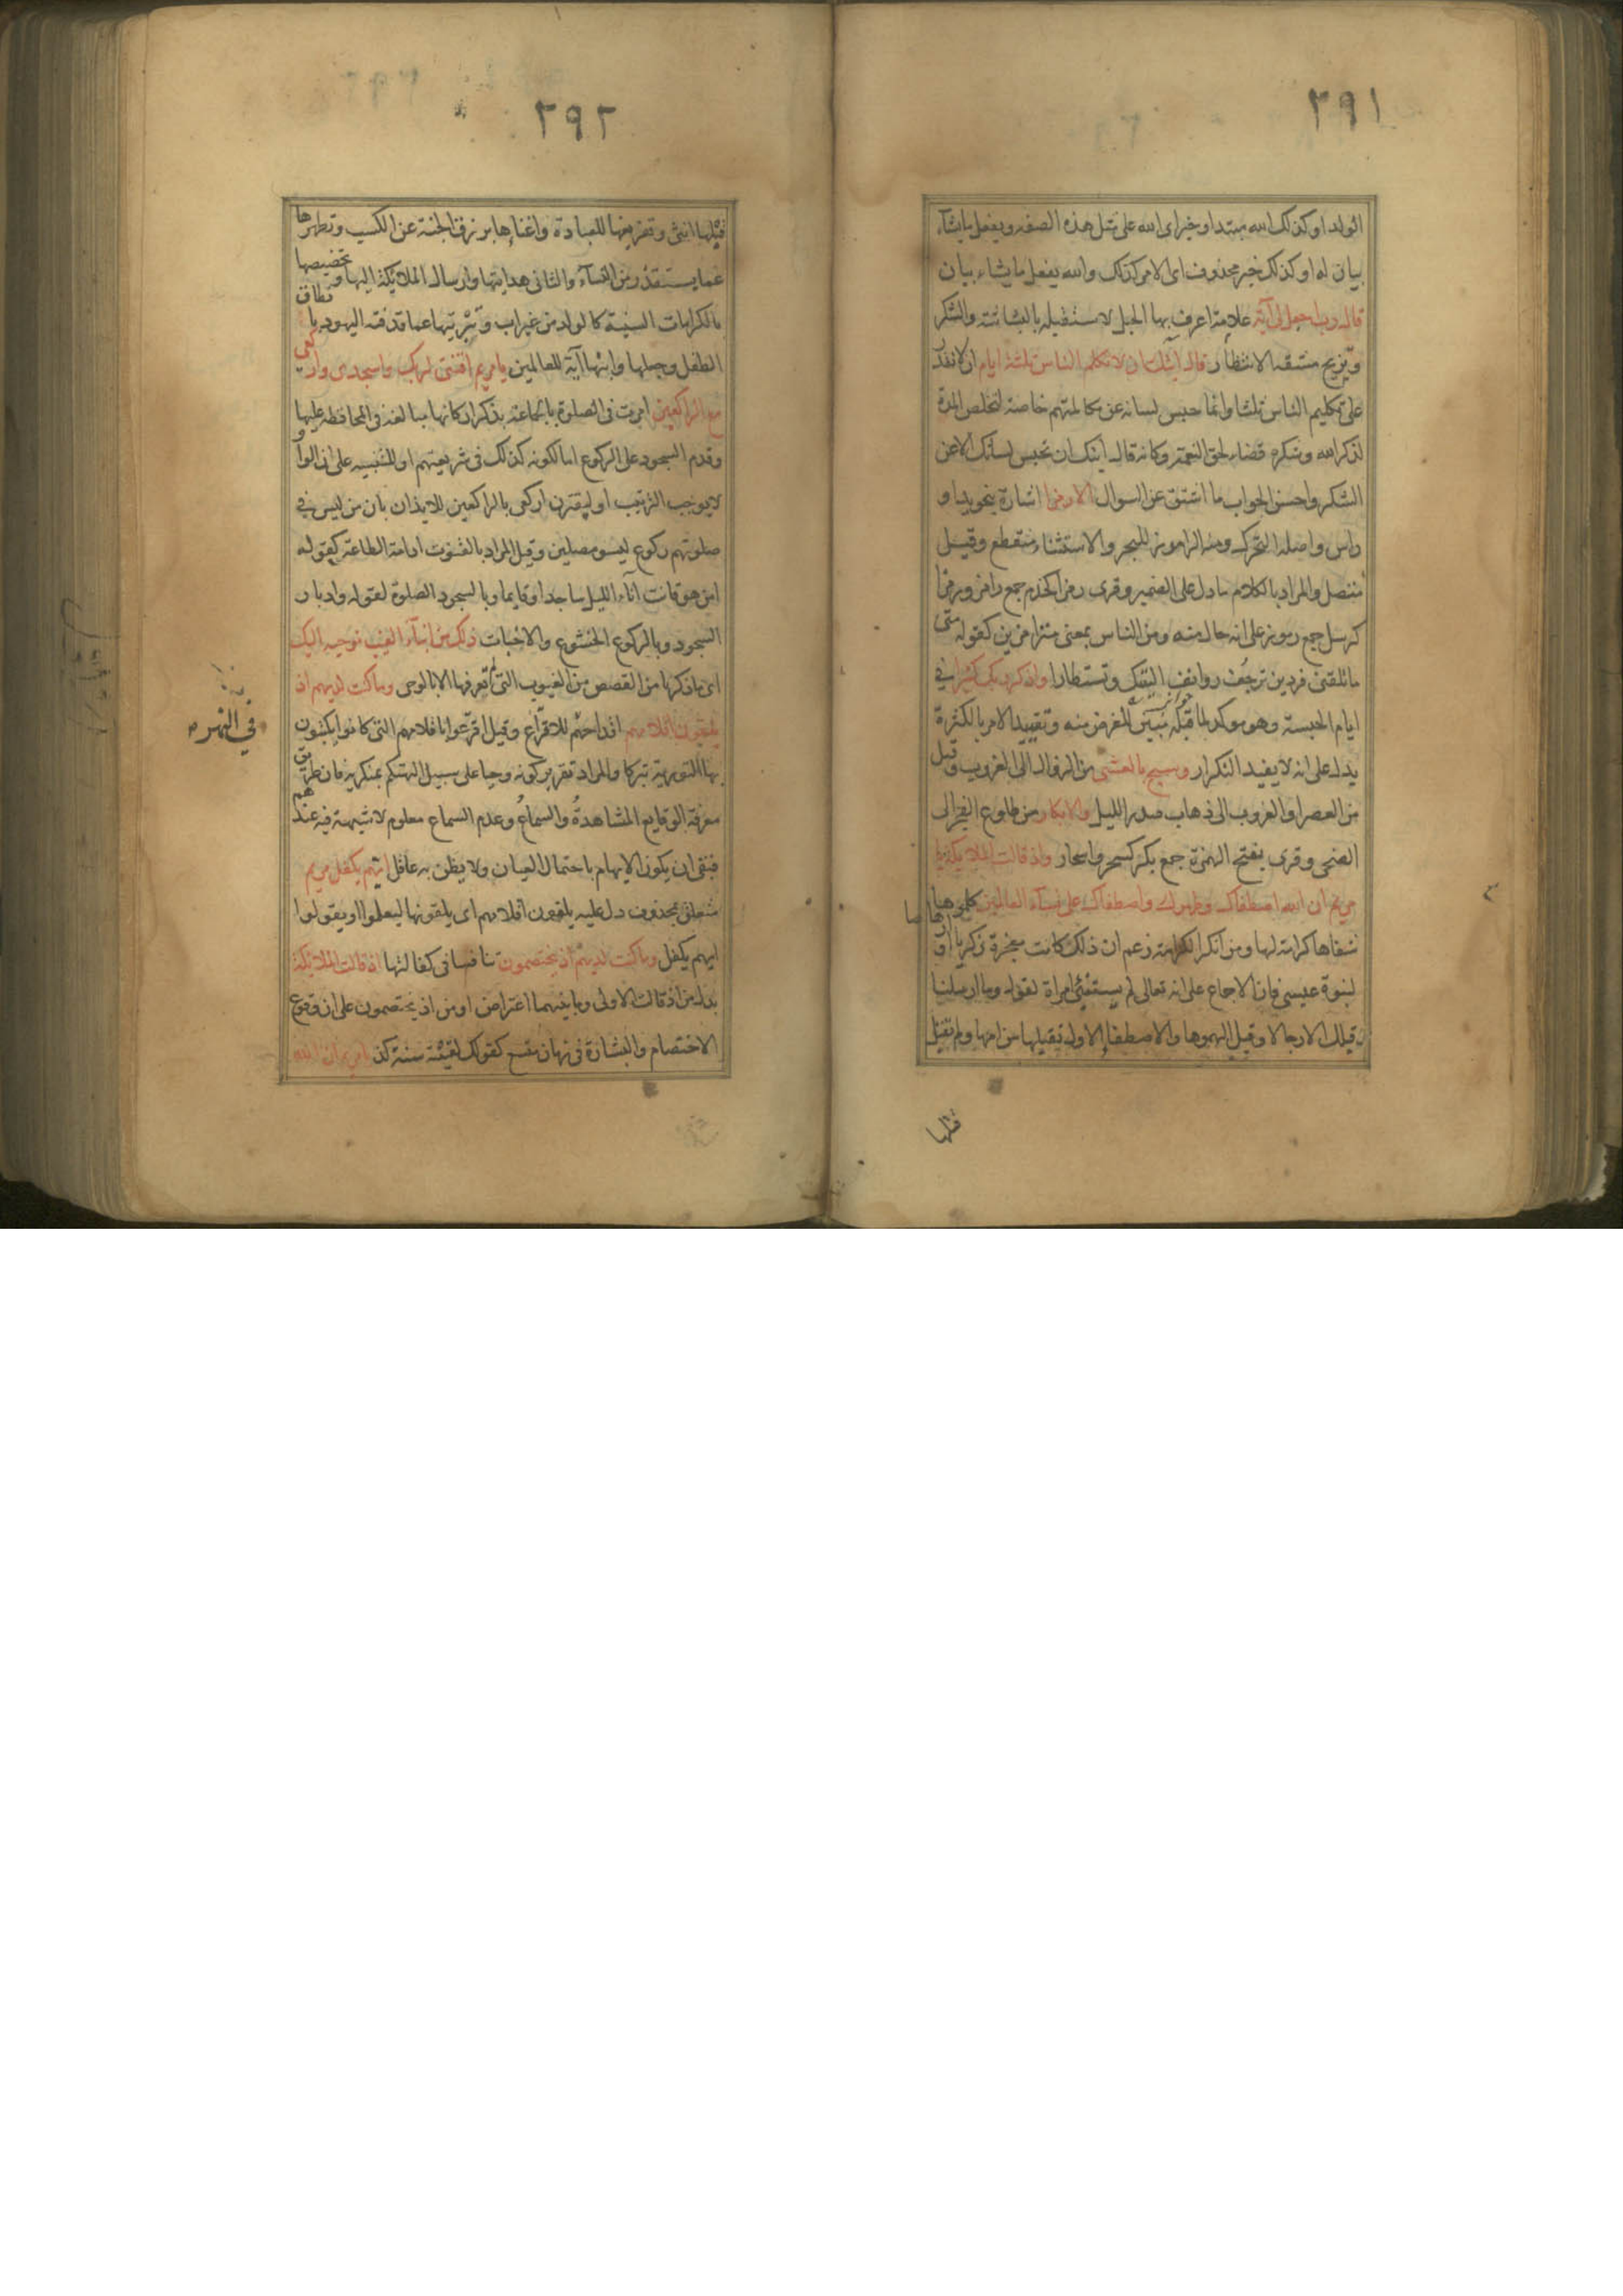 ٢٩١
الولد او كذلك الله مبتدا وخبر اى الله على مثل هذه الصفه ويفعل مايشاء
بيان له او كذلك خبر محذوف اى الامر كذلك والله يفعل ما يشاء بيان
قال رب اجعل لى آية علامة اعرف بها الحبل لاستقبله بالبشاشة والشكر
وتزيح مشقة الانتظار قال آيتك ان لا تكلم الناس ثلثة ايام ان لا تقدر
على تكليم الناس ثلثا وانما حبس لسانه عن مكالمتهم خاصة لتخلص المدة
لذكر الله وشكره قضاء لحق النعمة وكانه قال آيتك ان تحبس لسانك الا عن
الشكر واحسن الجواب ما اشتق عن السوال الا رمزا اشارة بنحو يد او
راس واصله التحرك ومنه الراموز للبحر والاستثناء منقطع وقيل
متصل والمراد بالكلام ما دل على الضمير وقرى رمزا كخدم جمع رامز ورمزا
كرسل جمع رموز على انه حال منه ومن الناس بمعنى مترامزين كقوله متى
ما تلقنى فردين ترجف روانف اليتيك وتستطارا واذكر ربك كثيرا فى
ايام الحبسة وهو موكد لما قبله مبين للغرض منه وتقييد الامر بالكثرة
يدل على انه لا يفيد التكرار وسبح بالعشى من الزوال الى الغروب وقيل
من العصر او الغروب الى ذهاب صدر الليل والابكار من طلوع الفجر الى
الضحى وقرى بفتح الهمزة جمع بكر كسحر واسحار واذ قالت الملايكة يا
مريم ان الله اصطفاك وطهرك واصطفاك على نساء العالمين كلموها
شفاها كرامة لها ومن انكر الكرامة زعم ان ذلك كانت معجزة زكريا او
ارهاصا
لنبوة عيسى فان الاجماع على انه تعالى لم يستنبئ امراة لقوله وما ارسلنا
من قبلك الا رجالا وقيل الهموها والاصطفاء الاول تقبلها من امها ولم تقبل
قبلها
٢٩٢
قبلها انثى وتفريغها للعبادة واغناءها برزق الجنة عن الكسب وتطهرها
عما يستقذر من النساء والثانى هدايتها وارسال الملائكة اليها وتخصيصها
بالكرامات السنية كالولد من غير اب وتبريتها عما قذفته اليهود بانطاق
الطفل وجعلها وابنها آية للعالمين يا مريم اقنتى لربك واسجدى واركعى
مع الراكعين امرت فى الصلوة بالجماعة بذكر اركانها مبالغة فى المحافظه عليها
وقدم السجود على الركوع اما لكونه كذلك فى شريعتهم او للتنبيه على ان الواو
لا يوجب الترتيب او ليقترن اركعى بالراكعين للايذان بان من ليس فى
صلوتهم ركوع ليسو مصلين وقيل المراد بالقنوت ادامة الطاعة كقوله
امن هو قانت اناء الليل ساجدا وقايما وبالسجود الصلوة لقوله وادبار
السجود وبالركوع الخشوع والاخبات ذلك من انباء الغيب نوحيه اليك
اى ماذكرنا من القصص من الغيوب التى لم تعرفها الا بالوحى وما كنت لديهم اذ
يلقون اقلامهم اقداحهم للاقتراع وقيل اقترعوا باقلامهم التى كانوا يكتبون
فى النهر
بها التورية تبركا والمراد تقرير كونه وحيا على سبيل التهكم بمنكريه فان طريق
معرفة الوقايع المشاهدة والسماع وعدم السماع معلوم لا شبهة فيه عندهم
فبقى ان يكون الايهام باحتمال العيان ولا يظن به عاقل ايهم يكفل مريم
متعلق بمحذوف دل عليه يلقون اقلامهم اى يلقونها ليعلموا او يقولوا
ايهم يكفل وما كنت لديهم اذ يختصمون تنافسا فى كفالتها اذ قالت الملائكة
بدل من اذ قالت الاولى وما بينهما اعتراض او من اذ يختصمون على ان وقوع
الاختصام والبشارة فى زمان متسع كقولك لقيته سنة كذا يا مريم ان الله